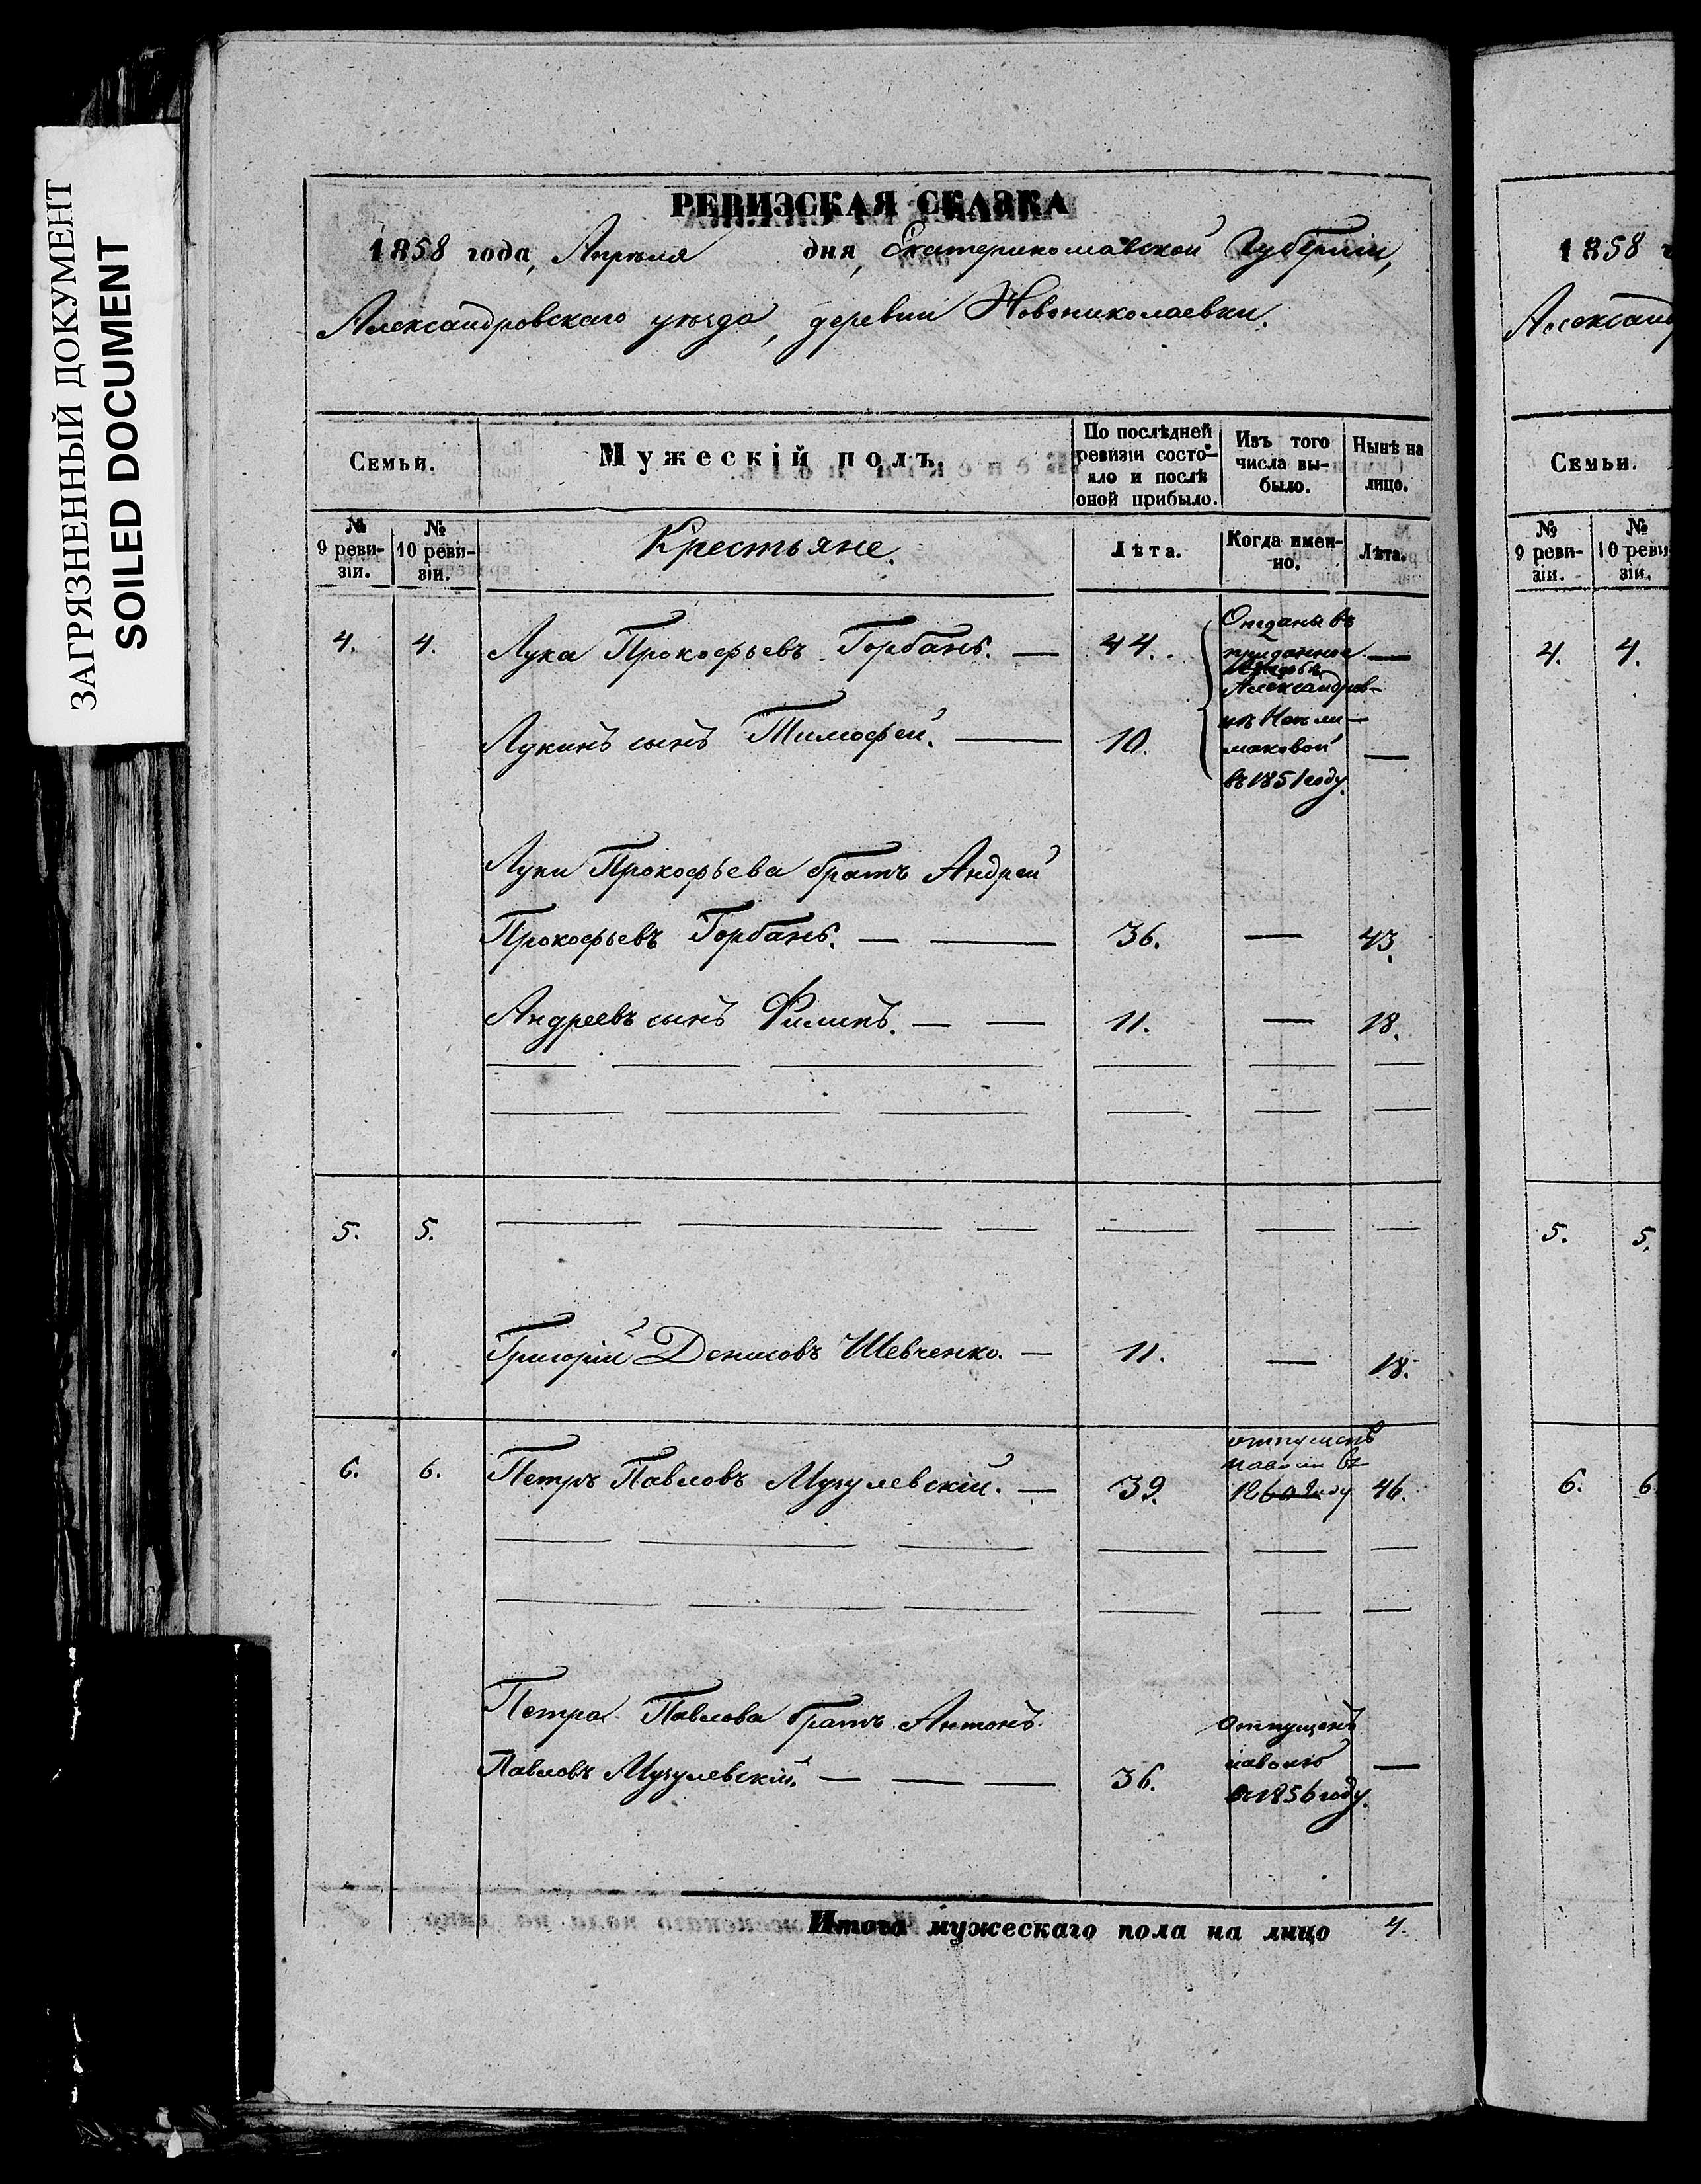 ЗАГРЯЗНЕННЫЙ ДОКУМЕНТ
SOILED DOCUMENT
РЕВИЗСКАЯ СКАЗКА
1858 года, Апреля дня, Екатеринославской Губерніи,
Александровскаго уѣзда, деревни Новониколаевки.
Семьи.
Мужескій полъ.
По послѣдней
ревизіи состо-
яло и послѣ
оной прибыло.
Изъ того
числа вы-
было.
Нынѣ на
лицо.
№
9 реви-
зіи.
№
10 реви-
зіи.
Крестьяне.
Лѣта.
Когда имен-
но.
Лѣта.
4. 4. Лука Прокофьевъ Горбань. — 44. —
Отданы въ
приданное
Александров-
нѣ
маковой
въ 1851 году.
Лукинъ сынъ Тимофей. — 10. —
Луки Прокофьева братъ Андрей
Прокофьевъ Горбань. — — 36. — 43.
Андреевъ сынъ Филипъ. — — 11. — 18.
5. 5.
Григорій Денисовъ Шевченко. — 11. — 18.
6. 6. Петръ Павловъ Мугулевскій. — 39. 46.
отпущенъ
на волю въ
1860 году
Петра Павлова братъ Антонъ
Павловъ Мугулевскій. — — — 36. —
отпущенъ
наволю
въ 1856 году.
Итого мужескаго пола на лицо 4.
1858 г
Александ
Семьи.
№
9 реви-
зіи.
№
10 реви
зіи.
4. 4.
5. 5.
6. 6